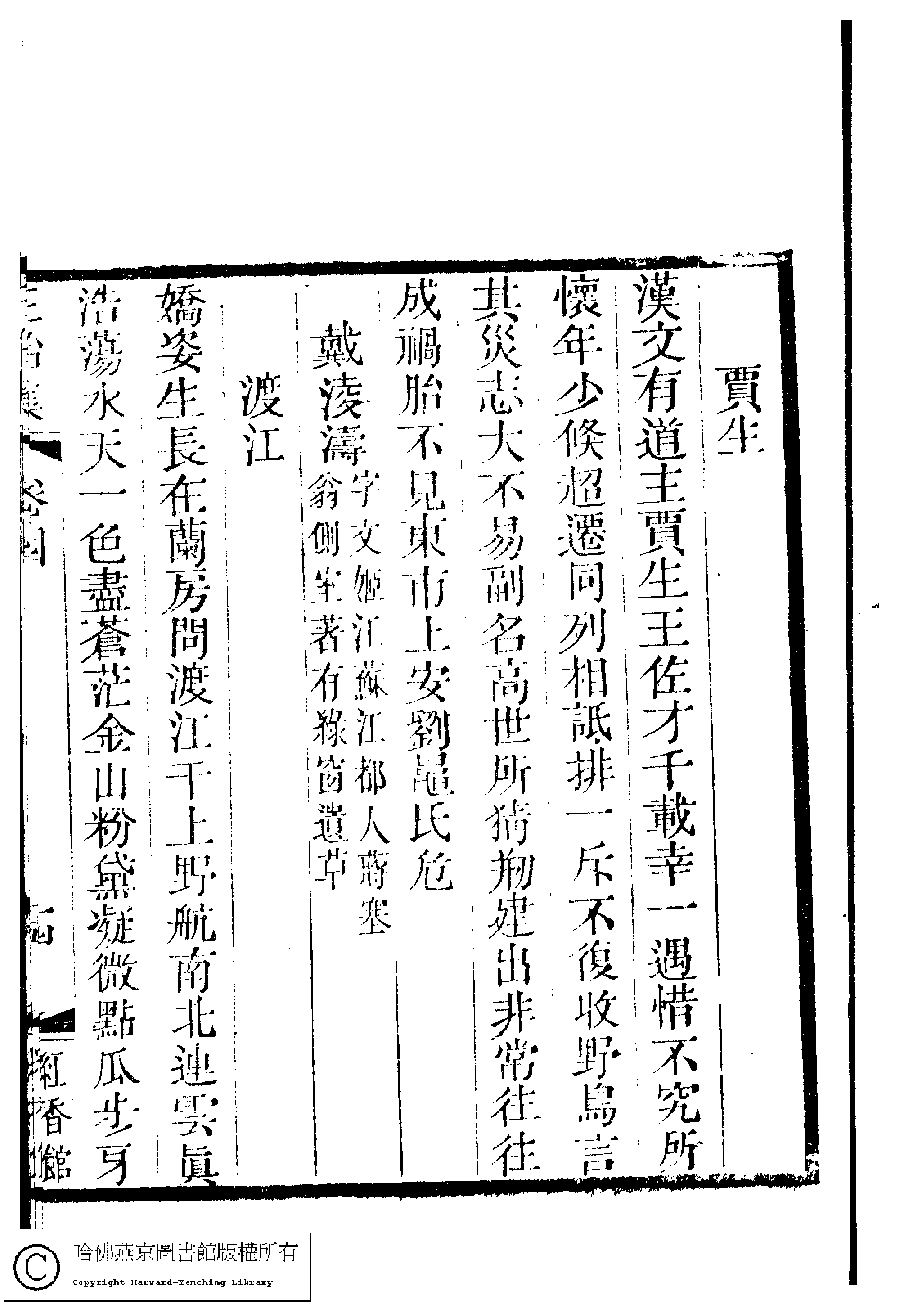 賈生
漢文有道主賈生王佐才千載幸一遇惜不究所
懷年少倐超遷同列相詆排一斥不復收野鳥言
其災志大不易副名高世所猜剏建出非常往往
成禍胎不見東市上安劉鼂氏危
戴淩濤
字文姬江蘇江都人蔣塞
翁側室著有綠窗遺草
渡江
嬌姿生長在蘭房問渡江干上野航南北連雲眞
浩蕩水天一色盡蒼茫金山粉黛凝微點瓜步牙
卷四
紅香館
哈佛燕京圖書館版權所有
Copyright Harvard-Yenching Library